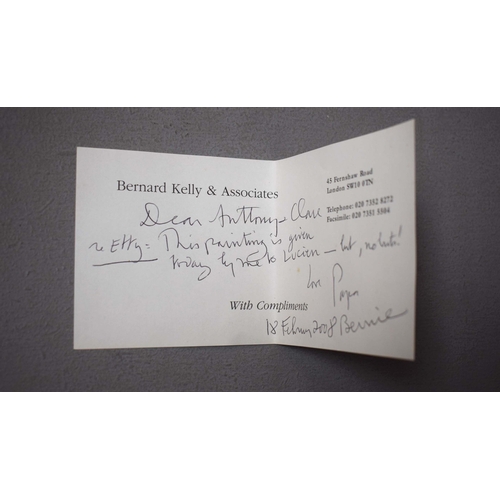 Bernard Kelly & Associates
45 Fernshaw Road
London SW10 0TN
Telephone: 020 7352 8272
Facsimile: 020 7351 5504
Dear Anthony + Clare
re Etty = This painting is given
today by me to Lucien — but, no buts!
love Papa
With Compliments
18 February 2008 Bernie